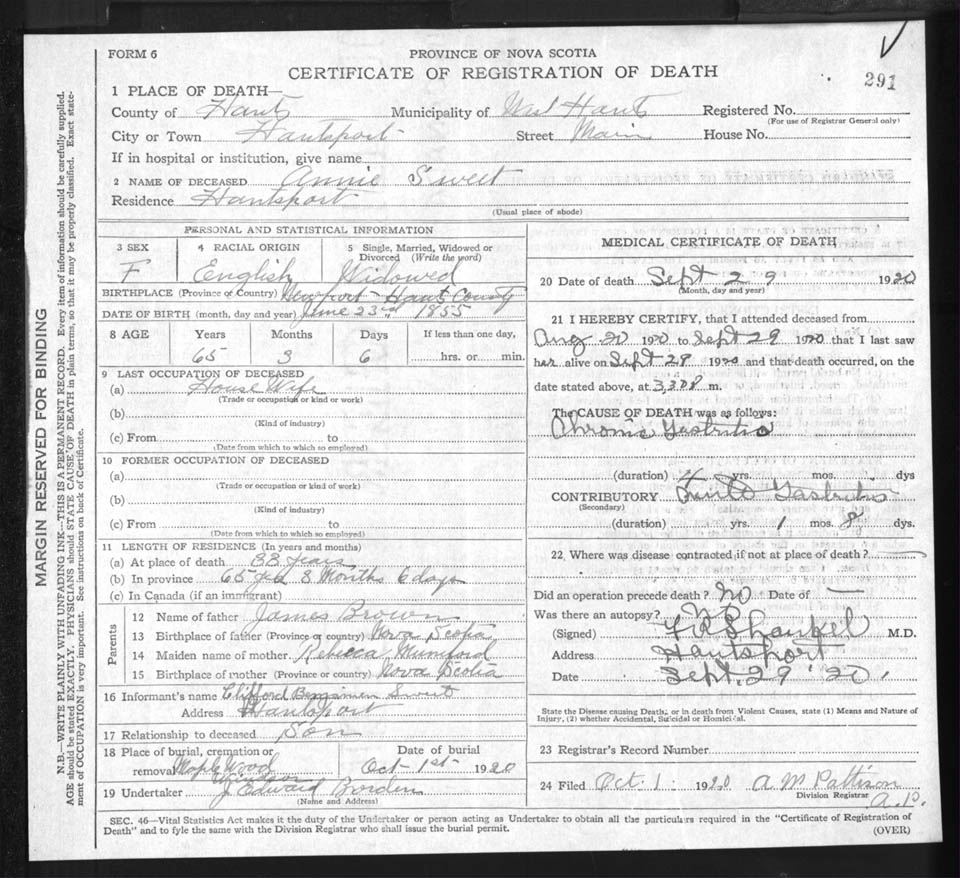 FORM 6
PROVINCE OF NOVA SCOTIA
CERTIFICATE OF REGISTRATION OF DEATH
291
1 PLACE OF DEATH—
County of Hants Municipality of West Hants Registered No.
(For use of Registrar General only)
City or Town Hantsport Street Main House No.
If in hospital or institution, give name
2 NAME OF DECEASED Annie Sweet
Residence Hantsport
(Usual place of abode)
PERSONAL AND STATISTICAL INFORMATION
3 SEX 4 RACIAL ORIGIN 5 Single, Married, Widowed or Divorced (Write the word)
F English Widowed
BIRTHPLACE (Province or Country) Newport - Hants County
DATE OF BIRTH (month, day and year) June 23rd 1855
8 AGE Years Months Days If less than one day,
65 3 6 hrs. or min.
9 LAST OCCUPATION OF DECEASED
(a) House Wife
(Trade or occupation or kind or work)
(b)
(Kind of industry)
(c) From to
(Date from which to which so employed)
10 FORMER OCCUPATION OF DECEASED
(a)
(Trade or occupation or kind of work)
(b)
(Kind of industry)
(c) From to
(Date from which to which so employed)
11 LENGTH OF RESIDENCE (In years and months)
(a) At place of death 33 years
(b) In province 65 yrs 3 Months 6 days
(c) In Canada (if an immigrant)
Parents
12 Name of father James Brown
13 Birthplace of father (Province or country) Nova Scotia
14 Maiden name of mother Rebecca Mumford
15 Birthplace of mother (Province or country) Nova Scotia
16 Informant's name Clifford Benjamen Sweet
Address Hantsport
17 Relationship to deceased Son
18 Place of burial, cremation or removal Maple Wood Windsor
Date of burial Oct 1st 1920
19 Undertaker J Edward Borden
(Name and Address)
MEDICAL CERTIFICATE OF DEATH
20 Date of death Sept 29 1920
(Month, day and year)
21 I HEREBY CERTIFY, that I attended deceased from
Aug 20 1920 to Sept 29 1920 that I last saw
her alive on Sept 29 1920 and that death occurred, on the
date stated above, at m.
The CAUSE OF DEATH was as follows:
Chronic Gastritis
(duration) 4 yrs. mos. dys
CONTRIBUTORY Acute Gastritis
(Secondary)
(duration) yrs. 1 mos. 8 dys.
22 Where was disease contracted if not at place of death? —
Did an operation precede death? No Date of —
Was there an autopsy?
(Signed) F R Shankel M.D.
Address Hantsport
Date Sept. 29 '20.
State the Disease causing Death, or in death from Violent Causes, state (1) Means and Nature of
Injury, (2) whether Accidental, Suicidal or Homicidal.
23 Registrar's Record Number
24 Filed Oct 1 1920 A M Pattison
Division Registrar
SEC. 46—Vital Statistics Act makes it the duty of the Undertaker or person acting as Undertaker to obtain all the particulars required in the "Certificate of Registration of
Death" and to fyle the same with the Division Registrar who shall issue the burial permit.
(OVER)
MARGIN RESERVED FOR BINDING
N.B.—WRITE PLAINLY WITH UNFADING INK—THIS IS A PERMANENT RECORD. Every item of information should be carefully supplied.
AGE should be stated EXACTLY. PHYSICIANS should STATE CAUSE OF DEATH in plain terms, so that it may be properly classified. Exact state-
ment of OCCUPATION is very important. See instructions on back of Certificate.